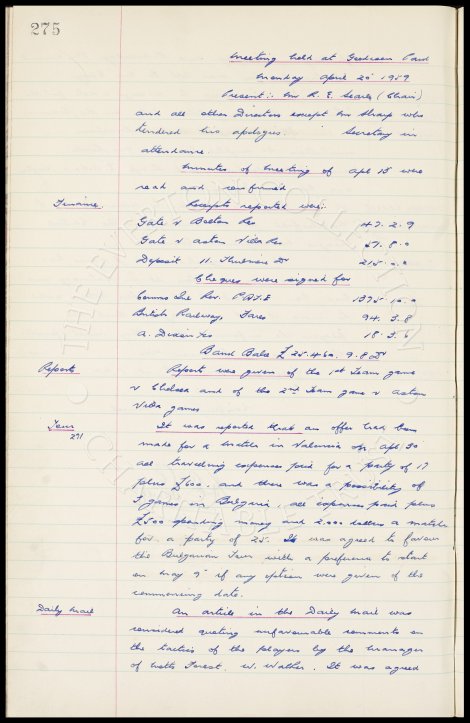 275
Meeting held at Goodison Park
Monday April 20 1959.
Present:- Mr R. E. Searle (Chair)
and all other Directors except Mr Sharp who
tendered his apologies. Secretary in
attendance.
Minutes of Meeting of Apl 15 were
read and confirmed.
Finance. Receipts reported were:-
Gate v Bolton Res 47. 2. 9
Gate v Aston Villa Res 57. 8. 0
Deposit H. Dr 215. 0. 0
Cheques were signed for
Comms Inl Rev. P.A.Y.E 1375 10. 0
British Railways, Fares 94. 5. 8
A. Dixon 18. 5. 6
Bank Balce £ 25.460. 9. 8 Dr
Reports Reports was given of the 1st Team game
v Chelsea and of the 2nd Team game v Aston
Villa games
Tour It was reported that an offer had been
271 made for a match in Valencia on Apl 30
all travelling expenses paid for a party of 17
plus £600. and there was a possibility of
5 games in Bulgaria, all expenses paid plus
£500 spending money and 2,000 dollars a match
for a party of 25. It was agreed to favour
the Bulgarian Tour with a preference to start
on May 9 if any option were given of the
commencing date.
Daily Mail An article in the Daily Mail was
considered quoting unfavourable comments on
the tactics of the players by the manager
of Notts Forest, W. Walker. It was agreed
THE EVERTON COLLECTION